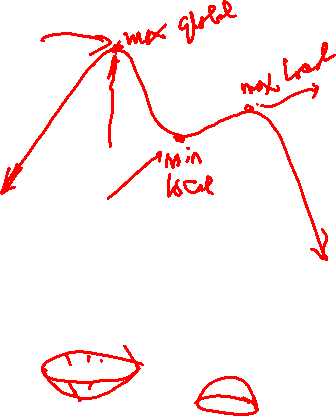 max global
max local
min
local